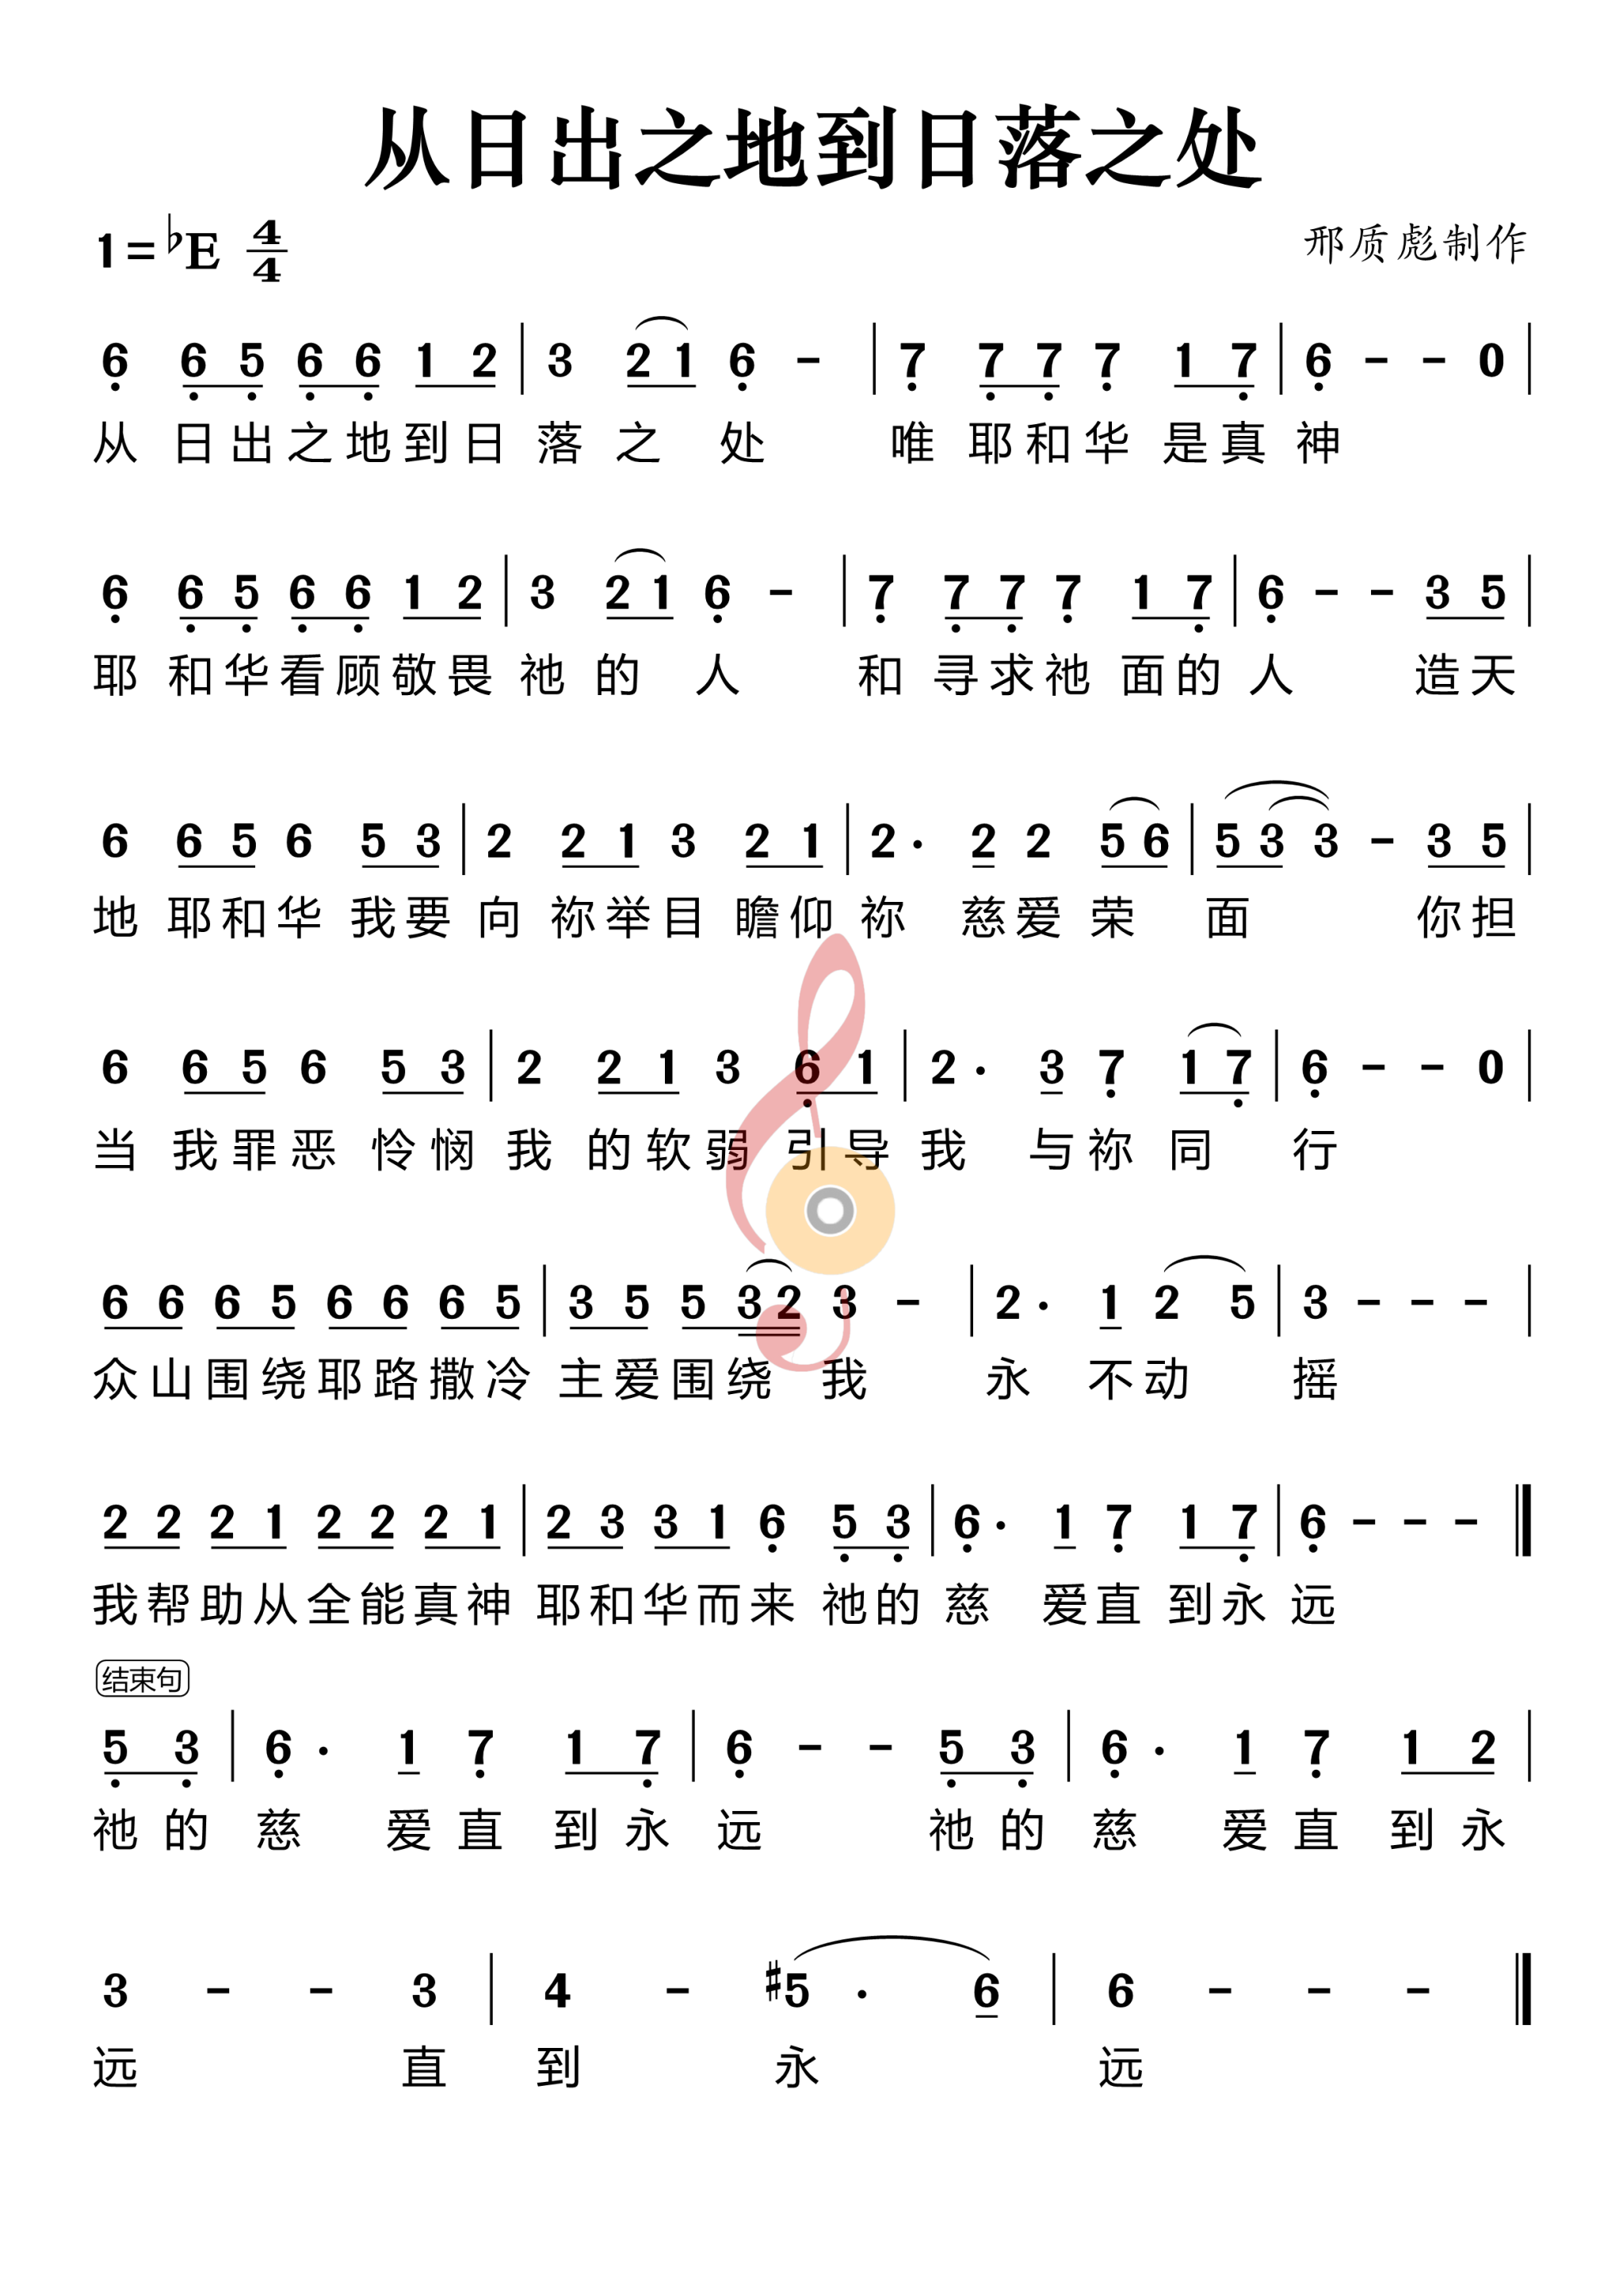 从日出之地到日落之处
1=♭E 4/4
邢质彪制作
6 6 5 6 6 1 2 | 3 2 1 6 - | 7 7 7 7 1 7 | 6 - - 0 |
从 日出之地到日 落 之 处 唯 耶和华 是真 神
6 6 5 6 6 1 2 | 3 2 1 6 - | 7 7 7 7 1 7 | 6 - - 3 5 |
耶 和华看顾敬畏 祂 的 人 和 寻求祂 面的 人 造天
6 6 5 6 5 3 | 2 2 1 3 2 1 | 2 · 2 2 5 6 | 5 3 3 - 3 5 |
地 耶和华 我要 向 祢举目 瞻仰 祢 慈爱 荣 面 你担
6 6 5 6 5 3 | 2 2 1 3 6 1 | 2 · 3 7 1 7 | 6 - - 0 |
当 我罪恶 怜悯 我 的软弱 引导 我 与祢 同 行
6 6 6 5 6 6 6 5 | 3 5 5 3 2 3 - | 2 · 1 2 5 | 3 - - - |
众山围绕耶路撒冷 主爱围绕 我 永 不动 摇
2 2 2 1 2 2 2 1 | 2 3 3 1 6 5 3 | 6 · 1 7 1 7 | 6 - - - ‖
我帮助从全能真神 耶和华而来 祂的 慈 爱直 到永 远
结束句
5 3 | 6 · 1 7 1 7 | 6 - - 5 3 | 6 · 1 7 1 2 |
祂的 慈 爱直 到永 远 祂的 慈 爱直 到永
3 - - 3 | 4 - #5 · 6 | 6 - - - ‖
远 直 到 永 远